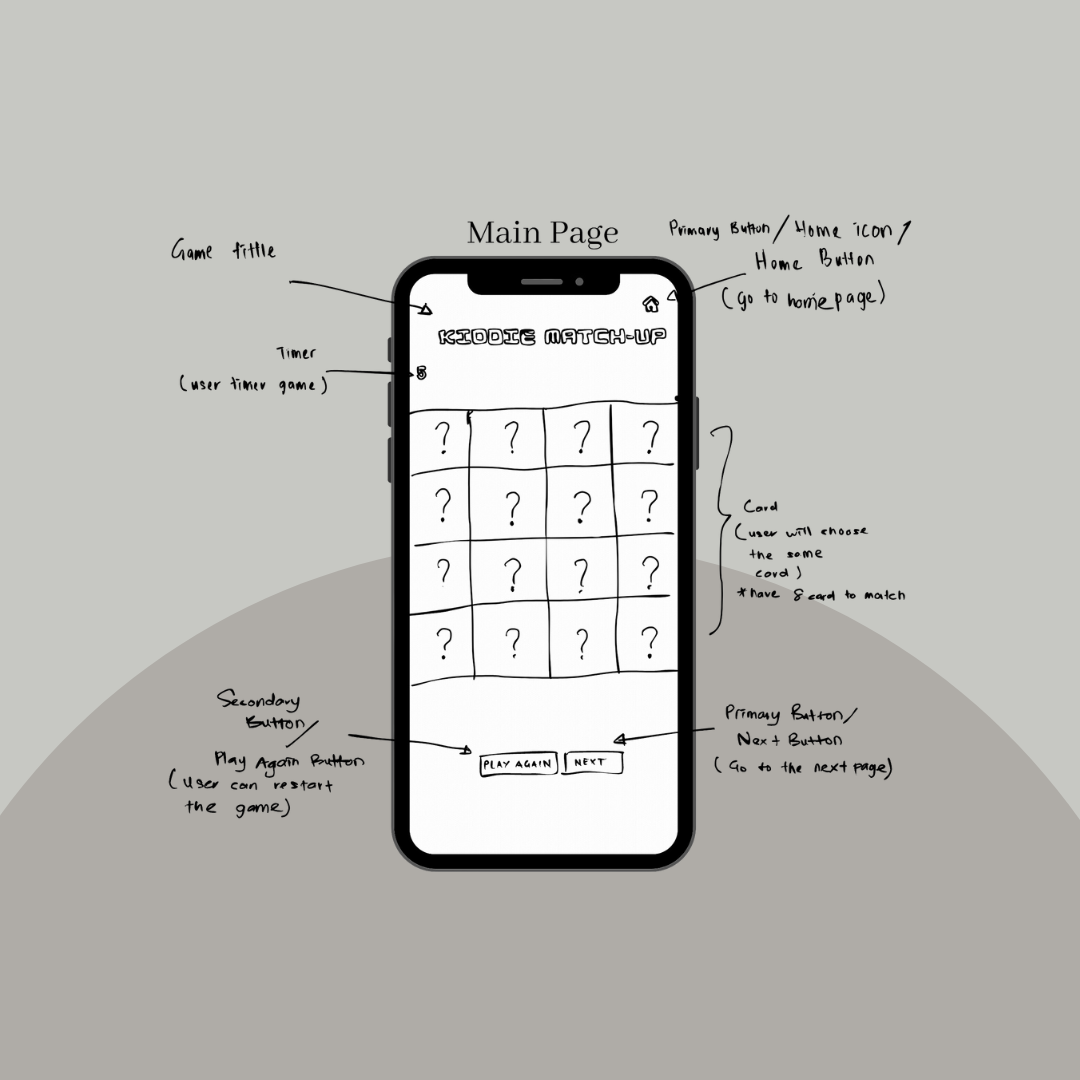 Main Page
Game tittle
Primary Button/Home icon/
Home Button
(Go to homepage)
KIDDIE MATCH-UP
Timer
(user timer game)
5
? ? ? ?
? ? ? ?
? ? ? ?
? ? ? ?
Card
(user will choose
the same
card)
*have 8 card to match
Secondary
Button/
Play Again Button
(User can restart
the game)
PLAY AGAIN
NEXT
Primary Button/
Next Button
(Go to the next page)